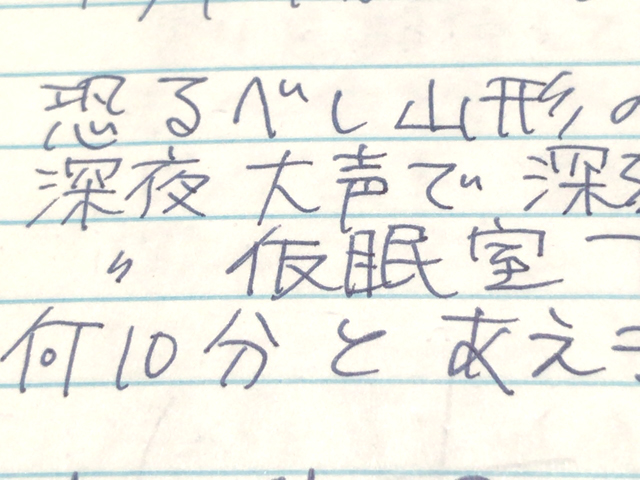 恐るべし山形の
深夜 大声で 深夜
〃 仮眠室で
何10分と あえ